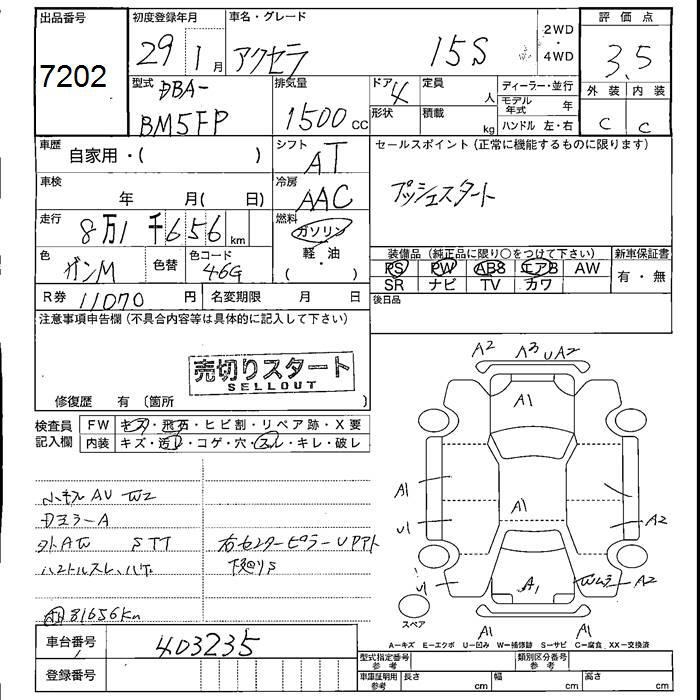 出品番号
7202
初度登録年月
29 1 月
車名・グレード
アクセラ 15S
2WD・4WD
評価点
3.5
外装 内装
C C
型式
DBA-
BM5FP
排気量
1500 cc
ドア 4
形状
定員 人
積載 kg
ディーラー・並行
モデル年式 年
ハンドル 左・右
車歴
自家用・( )
シフト
AT
セールスポイント (正常に機能するものに限ります)
プッシュスタート
車検
年 月( 日)
冷房
AAC
走行
8万1千656 km
燃料
ガソリン
軽・油
( )
色
ガンM
色替
色コード
46G
装備品 (純正品に限り○をつけて下さい)
PS PW ABS エアB AW
SR ナビ TV カワ
新車保証書
有・無
R券 11070 円
名変期限 月 日
後日品
注意事項申告欄 (不具合内容等は具体的に記入して下さい)
売切りスタート
SELLOUT
修復歴 有 (箇所 )
検査員記入欄
FW キズ・飛石・ヒビ割・リペア跡・X要
内装 キズ・汚レ・コゲ・穴・スレ・キレ・破レ
小キズ AU W2
Dミラー A
外AW STT
ハンドルスレ、ハゲ
81656Km
右センターピラーUPアト
下廻りS
A2 A3 UA2
A1
A1
A1
U1
A2
U1
A1
Wムラ
A2
スペア
A1
A1
A=キズ E=エクボ U=凹み W=補修跡 S=サビ C=腐食 XX=交換済
車台番号
403235
登録番号
型式指定番号 参考
類別区分番号 参考
車庫証明用 参考
長さ cm
幅 cm
高さ cm